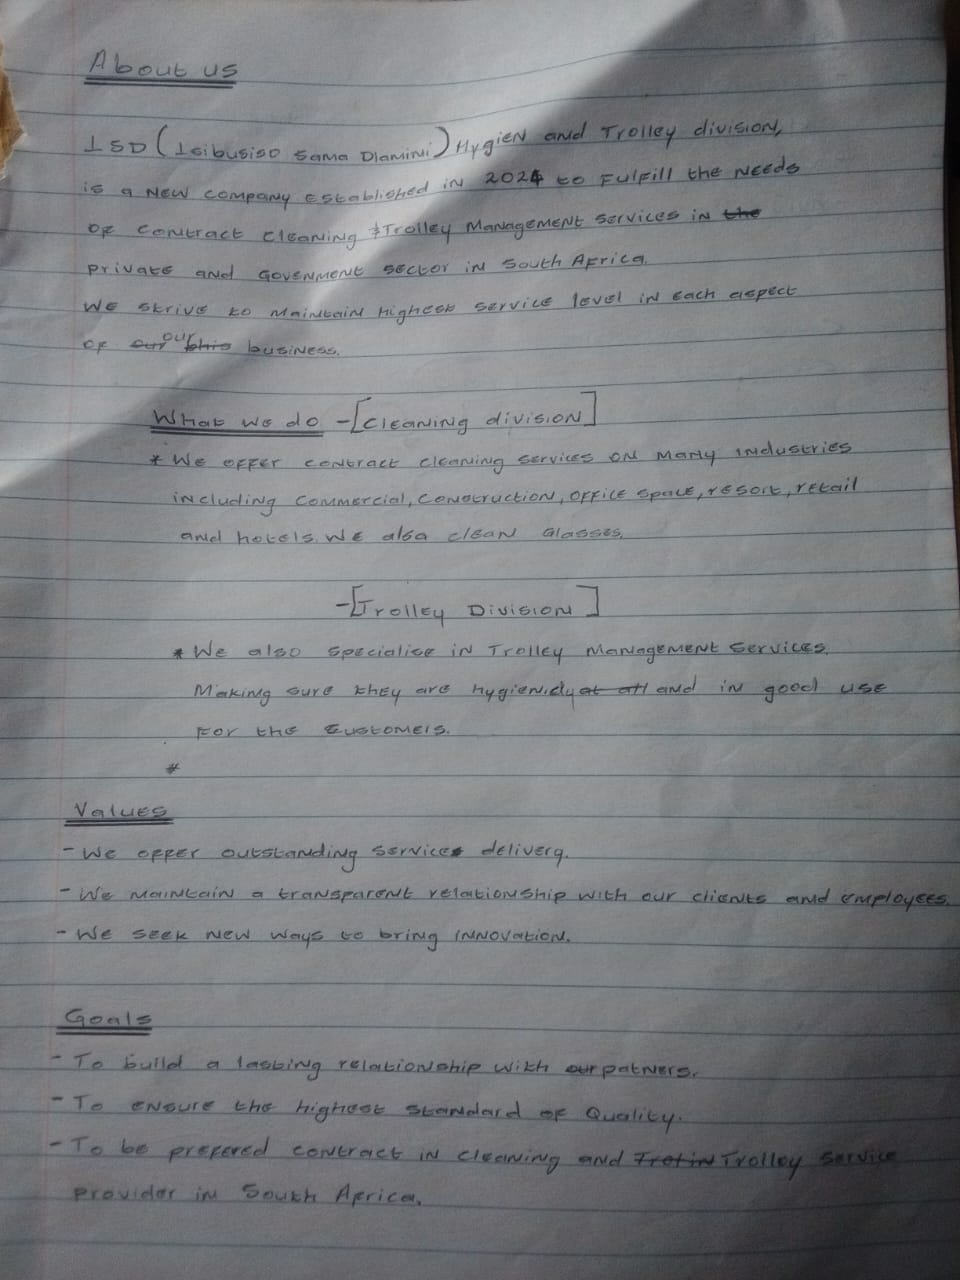 About us
ISD (Isibusiso Sama Dlamini) Hygien and Trolley division,
is a New company Established in 2024 to Fulfill the Needs
OF contract cleaning & Trolley Management Services in the
private and Govenment sector in South Africa.
We strive to Maintain Highest service level in each aspect
of our our this business.
What we do -[Cleaning division]
* We offer contract cleaning services on Many industries
including commercial, construction, office space, resort, retail
and hotels. We also clean Glasses.
-[Trolley Division]
* We also specialise in Trolley Management Services.
Making sure they are hygienicly at all and in good use
For the customers.
*
Values
- We offer outstanding services delivery.
- We Maintain a transparent relationship with our clients and employees.
- We seek new ways to bring INNOVation.
Goals
- To build a lasting relationship with our patners.
- To ensure the highest standard of Quality.
- To be prefered contract in cleaning and Trolley service
provider in South Africa.